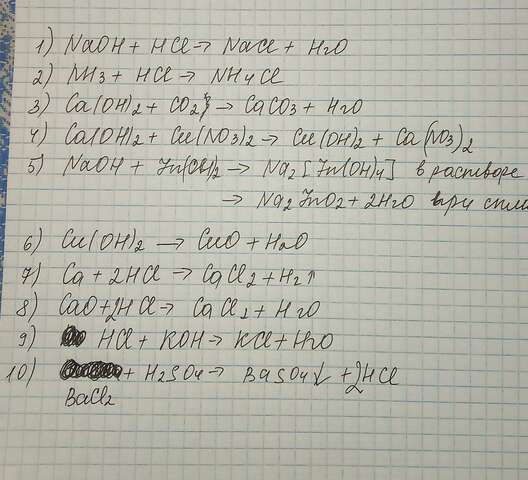 1) NaOH + HCl → NaCl + H2O
2) NH3 + HCl → NH4Cl
3) Ca(OH)2 + CO2 → CaCO3 + H2O
4) Ca(OH)2 + Cu(NO3)2 → Cu(OH)2 + Ca(NO3)2
5) NaOH + Zn(OH)2 → Na2[Zn(OH)4] в растворе
→ Na2ZnO2 + 2H2O при спла
6) Cu(OH)2 → CuO + H2O
7) Ca + 2HCl → CaCl2 + H2↑
8) CaO + 2HCl → CaCl2 + H2O
9) HCl + KOH → KCl + H2O
10) + H2SO4 → BaSO4↓ + 2HCl
BaCl2